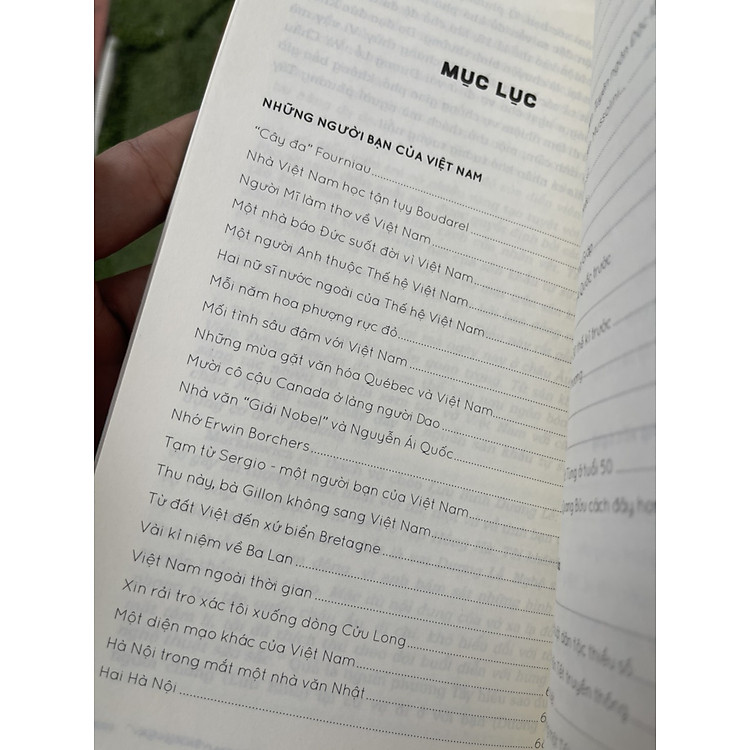 MỤC LỤC
NHỮNG NGƯỜI BẠN CỦA VIỆT NAM
"Cây đa" Fourniau
Nhà Việt Nam học tận tụy Boudarel
Người Mĩ làm thơ về Việt Nam
Một nhà báo Đức suốt đời vì Việt Nam
Một người Anh thuộc Thế hệ Việt Nam
Hai nữ sĩ nước ngoài của Thế hệ Việt Nam
Mỗi năm hoa phượng rực đỏ
Mối tình sâu đậm với Việt Nam
Những mùa gặt văn hóa Québec và Việt Nam
Mười cô cậu Canada ở làng người Dao
Nhà văn "Giải Nobel" và Nguyễn Ái Quốc
Nhớ Erwin Borchers
Tạm từ Sergio - một người bạn của Việt Nam
Thu này, bà Gillon không sang Việt Nam
Từ đất Việt đến xứ biển Bretagne
Vài kỉ niệm về Ba Lan
Việt Nam ngoài thời gian
Xin rải tro xác tôi xuống dòng Cửu Long
Một diện mạo khác của Việt Nam
Hà Nội trong mắt một nhà văn Nhật
Hai Hà Nội
Quốc trước
thế kỉ trước
Tùng ở tuổi 50
Bửu cách đây
dân tộc thiểu số
Tết truyền thống